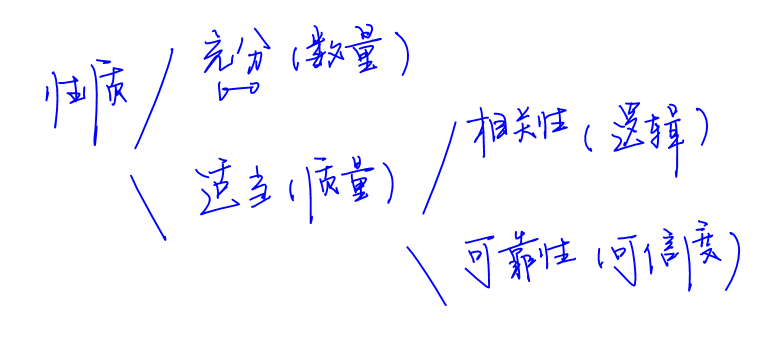 性质
充分(数量)
适当(质量)
相关性(逻辑)
可靠性(可信度)